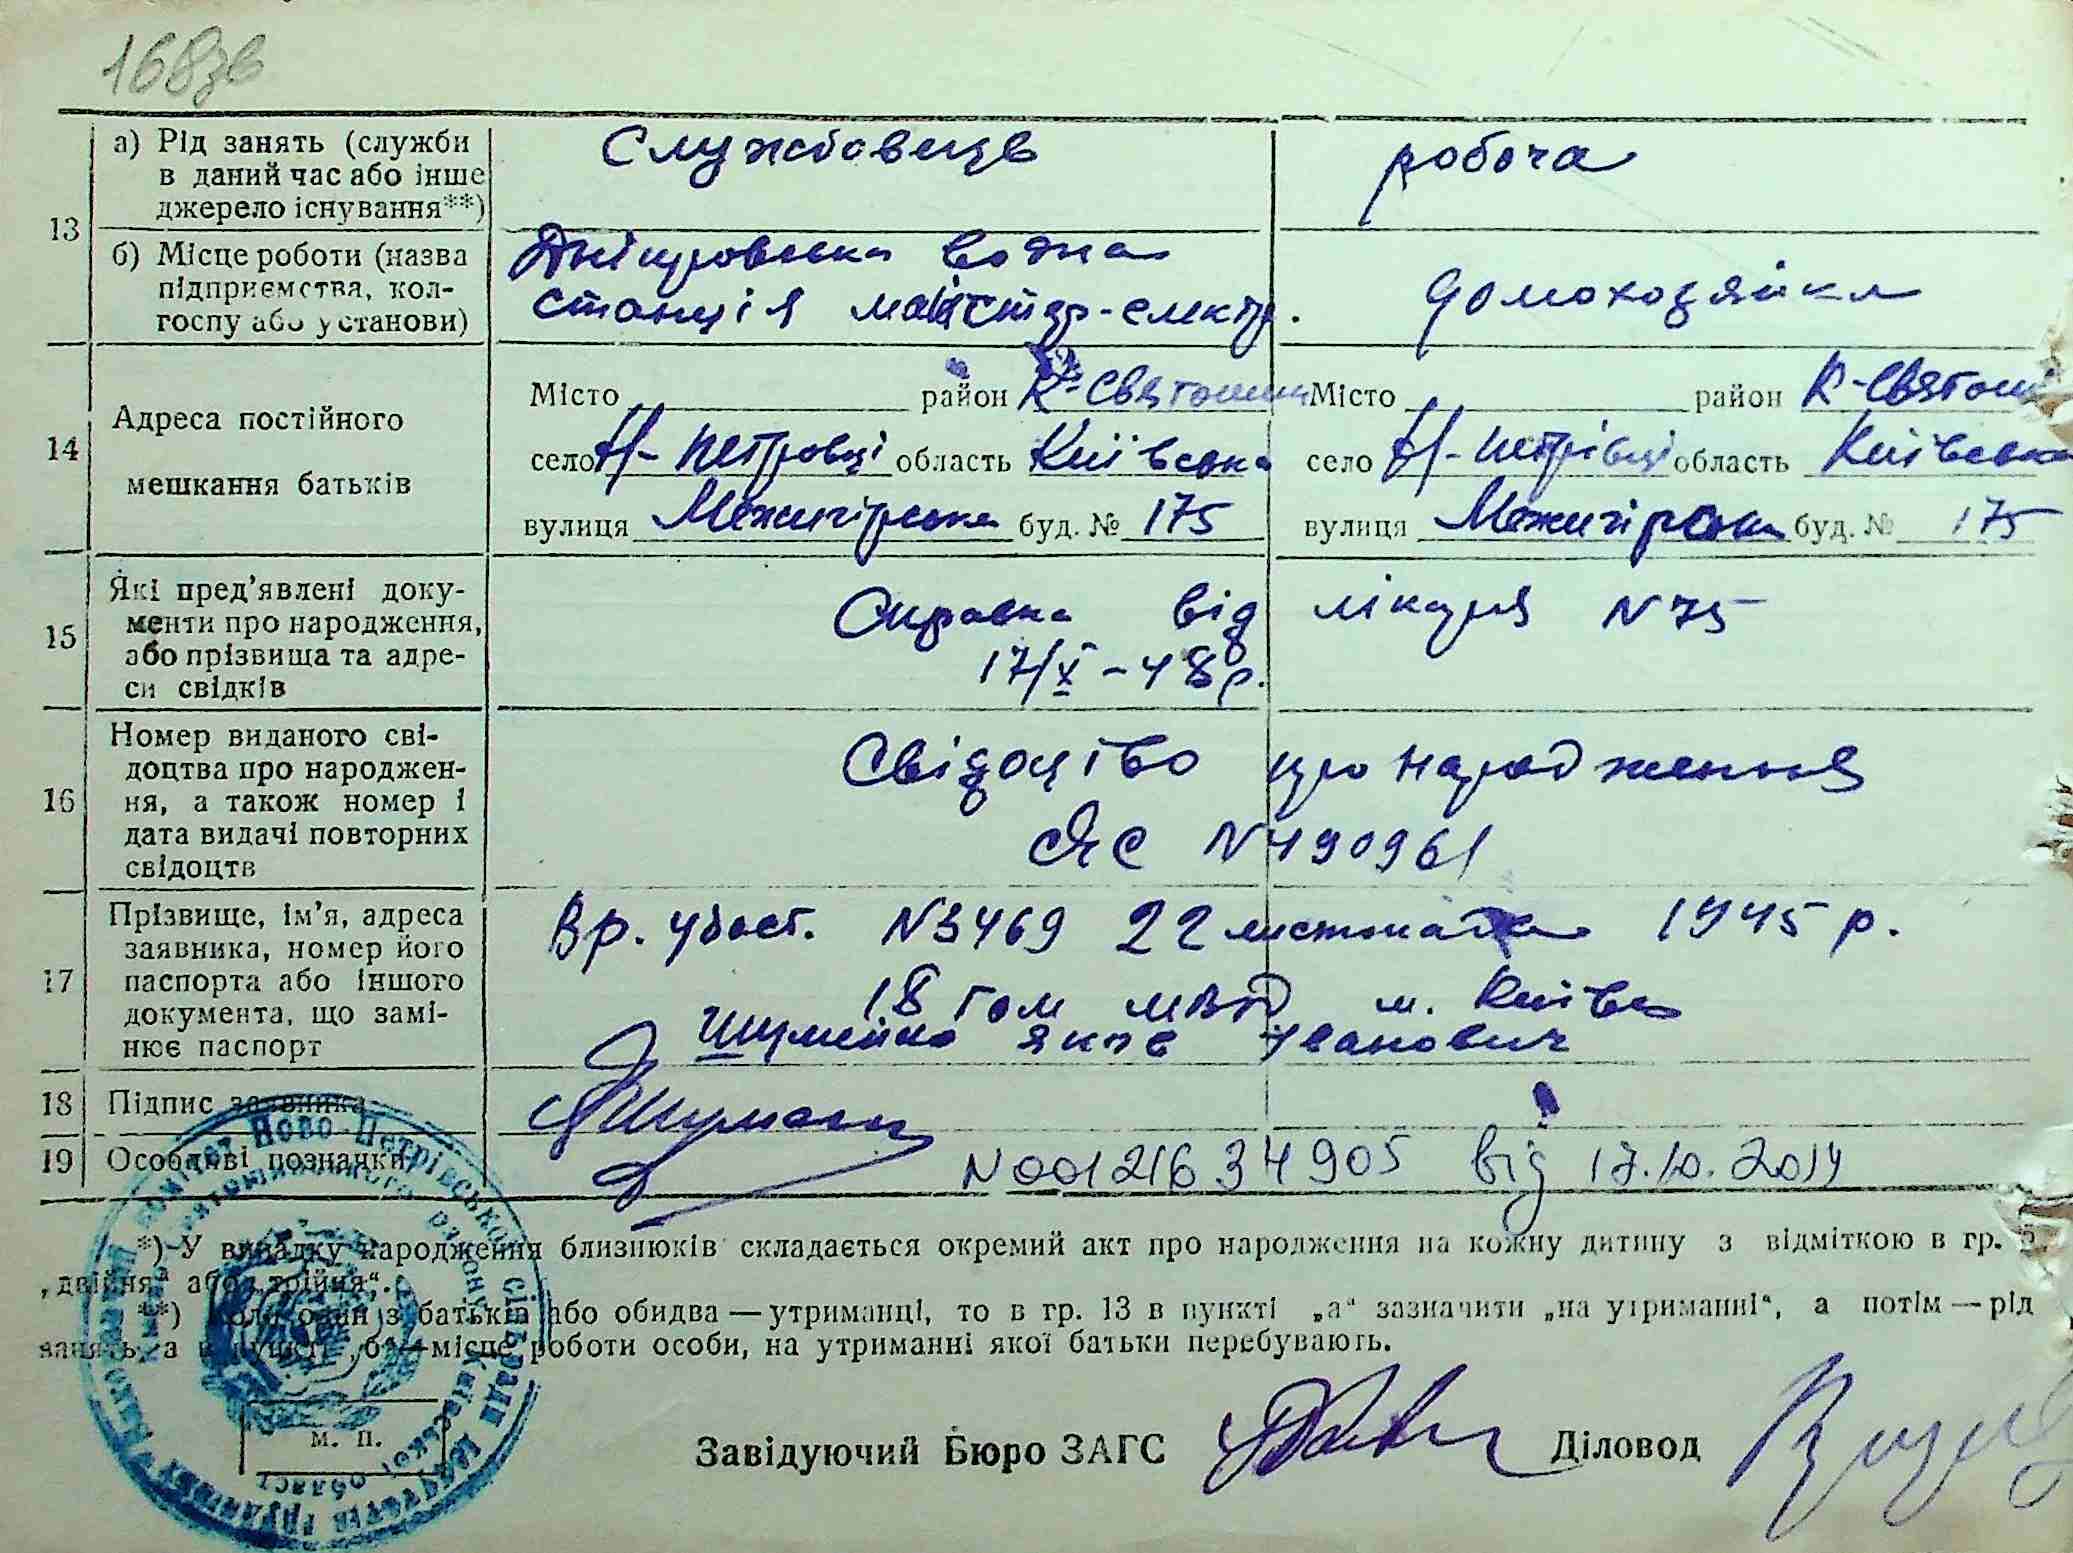 168зв
13
а) Рід занять (служби
в даний час або інше
джерело існування**)
Службовець
робоча
б) Місце роботи (назва
підприємства, кол-
госпу або установи)
Дніпровська водна
станція майстер-електр.
домохозяйка
14
Адреса постійного
мешкання батьків
Місто район К-Святошин
село Н-Петрівці область Київська
вулиця Межигірська буд. № 175
Місто район К-Святош
село Н-Петрівці область Київська
вулиця Межигірська буд. № 175
15
Які пред'явлені доку-
менти про народження,
або прізвища та адре-
си свідків
Справка від лікаря N 75
17/X-48р.
16
Номер виданого сві-
доцтва про народжен-
ня, а також номер і
дата видачі повторних
свідоцтв
Свідоцтво про народження
ЯС N 490961
17
Прізвище, ім'я, адреса
заявника, номер його
паспорта або іншого
документа, що замі-
нює паспорт
Вр. удост. N3469 22 листопада 1945 р.
18 гом МВД м. Київа
Шумейко Яків Іванович
18
Підпис заявника
19
Особливі позначки
N 00121634905 від 17.10.2014
*) У випадку народження близнюків складається окремий акт про народження на кожну дитину з відміткою в гр. 5
„двійня“ або „трійня“.
**) Коли один з батьків або обидва — утриманці, то в гр. 13 в пункті „а“ зазначити „на утриманні“, а потім — рід
занять, а в пункті „б“ — місце роботи особи, на утриманні якої батьки перебувають.
м. п.
Завідуючий Бюро ЗАГС
Діловод